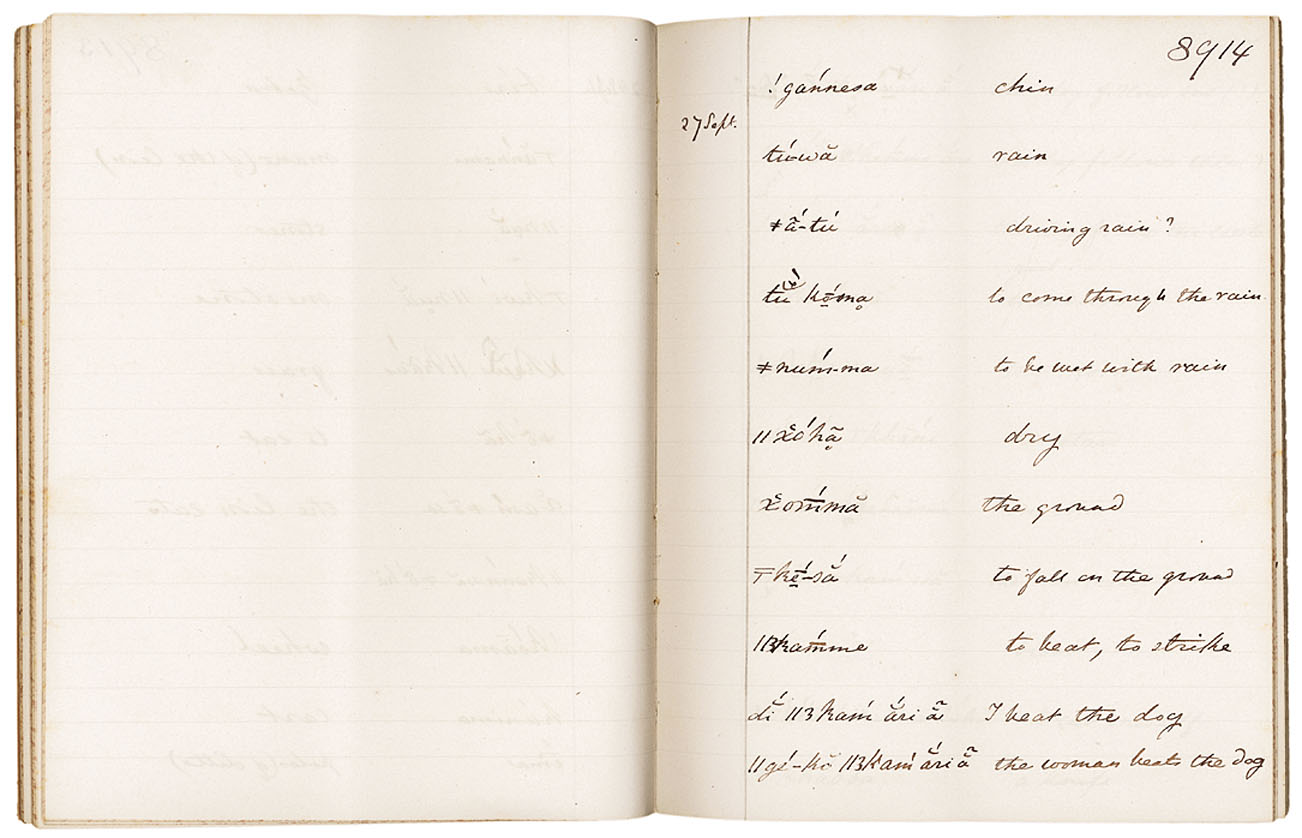 8914
! gańnesa chin
27 Sept.
tú-wă rain
ǂã́-tú driving rain ?
tú kṓma̭ to come through the rain
ǂnuḿ-ma to be wet with rain
ǁx̌óhã̭ dry
x̌om̄́mă the ground
ké̱-sắ to fall on the ground
ǁ3kam̄́me to beat, to strike
dí̆ ǁ3kaḿ ắri ã̆ I beat the dog
ǁgé-kŏ ǁ3kaḿ ắri ã̆ the woman beats the dog